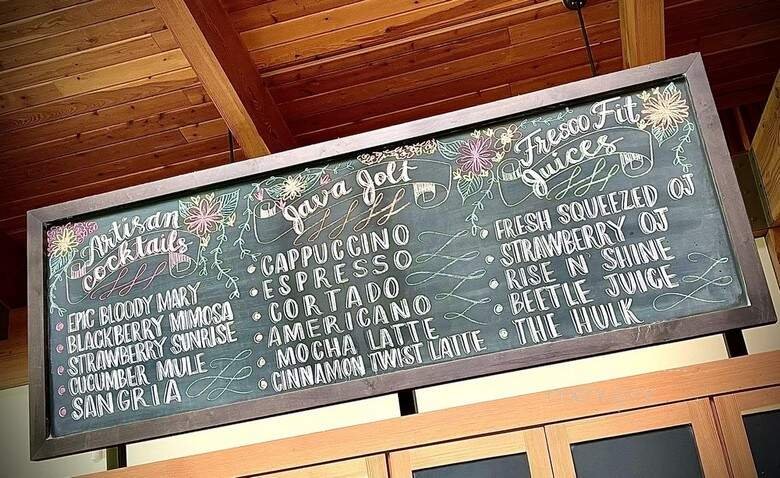 Artisan
Cocktails
EPIC BLOODY MARY
BLACKBERRY MIMOSA
STRAWBERRY SUNRISE
CUCUMBER MULE
SANGRIA
Java Jolt
CAPPUCCINO
ESPRESSO
CORTADO
AMERICANO
MOCHA LATTE
CINNAMON TWIST LATTE
Fresco Fit
Juices
FRESH SQUEEZED OJ
STRAWBERRY OJ
RISE N SHINE
BEETLE JUICE
THE HULK